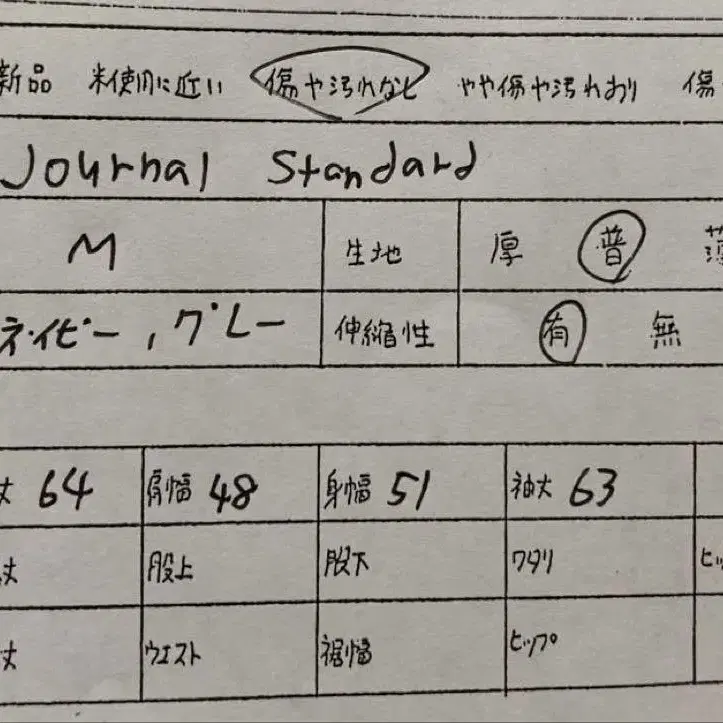 新品 未使用に近い 傷や汚れなし やや傷や汚れあり 傷
Journal Standard
M 生地 厚 普 薄
ネイビー,グレー 伸縮性 有 無
丈 64 肩幅 48 身幅 51 袖丈 63
丈 股上 股下 ワタリ ヒッ
丈 ウエスト 裾幅 ヒップ